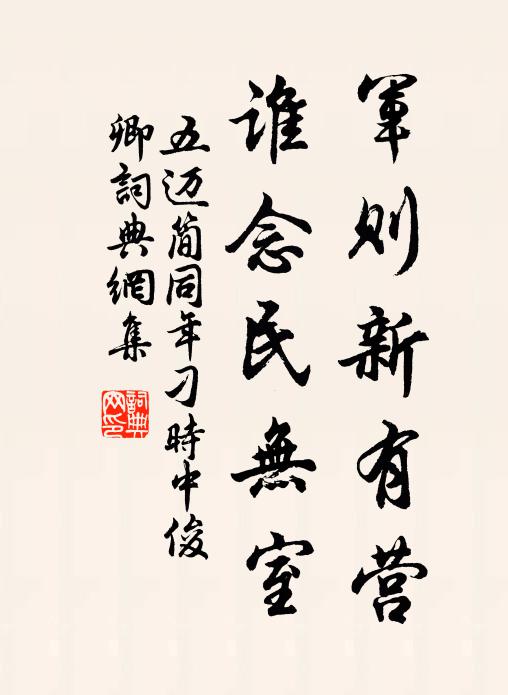 軍則新有营
誰念民無室
五迈简同年刁時中俊
卿詞典網集
詞典
网印